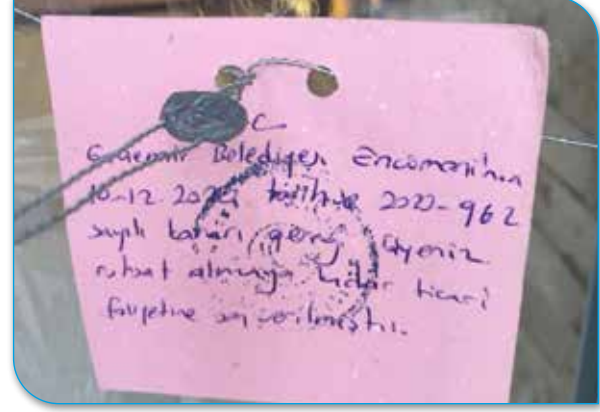 C
Belediyesi Encümeni'nin
10-12. tarih ve 2020-962
sayılı kararı gereği işyeriniz
ruhsat almaya kadar ticari
faaliyetine son verilmiştir.